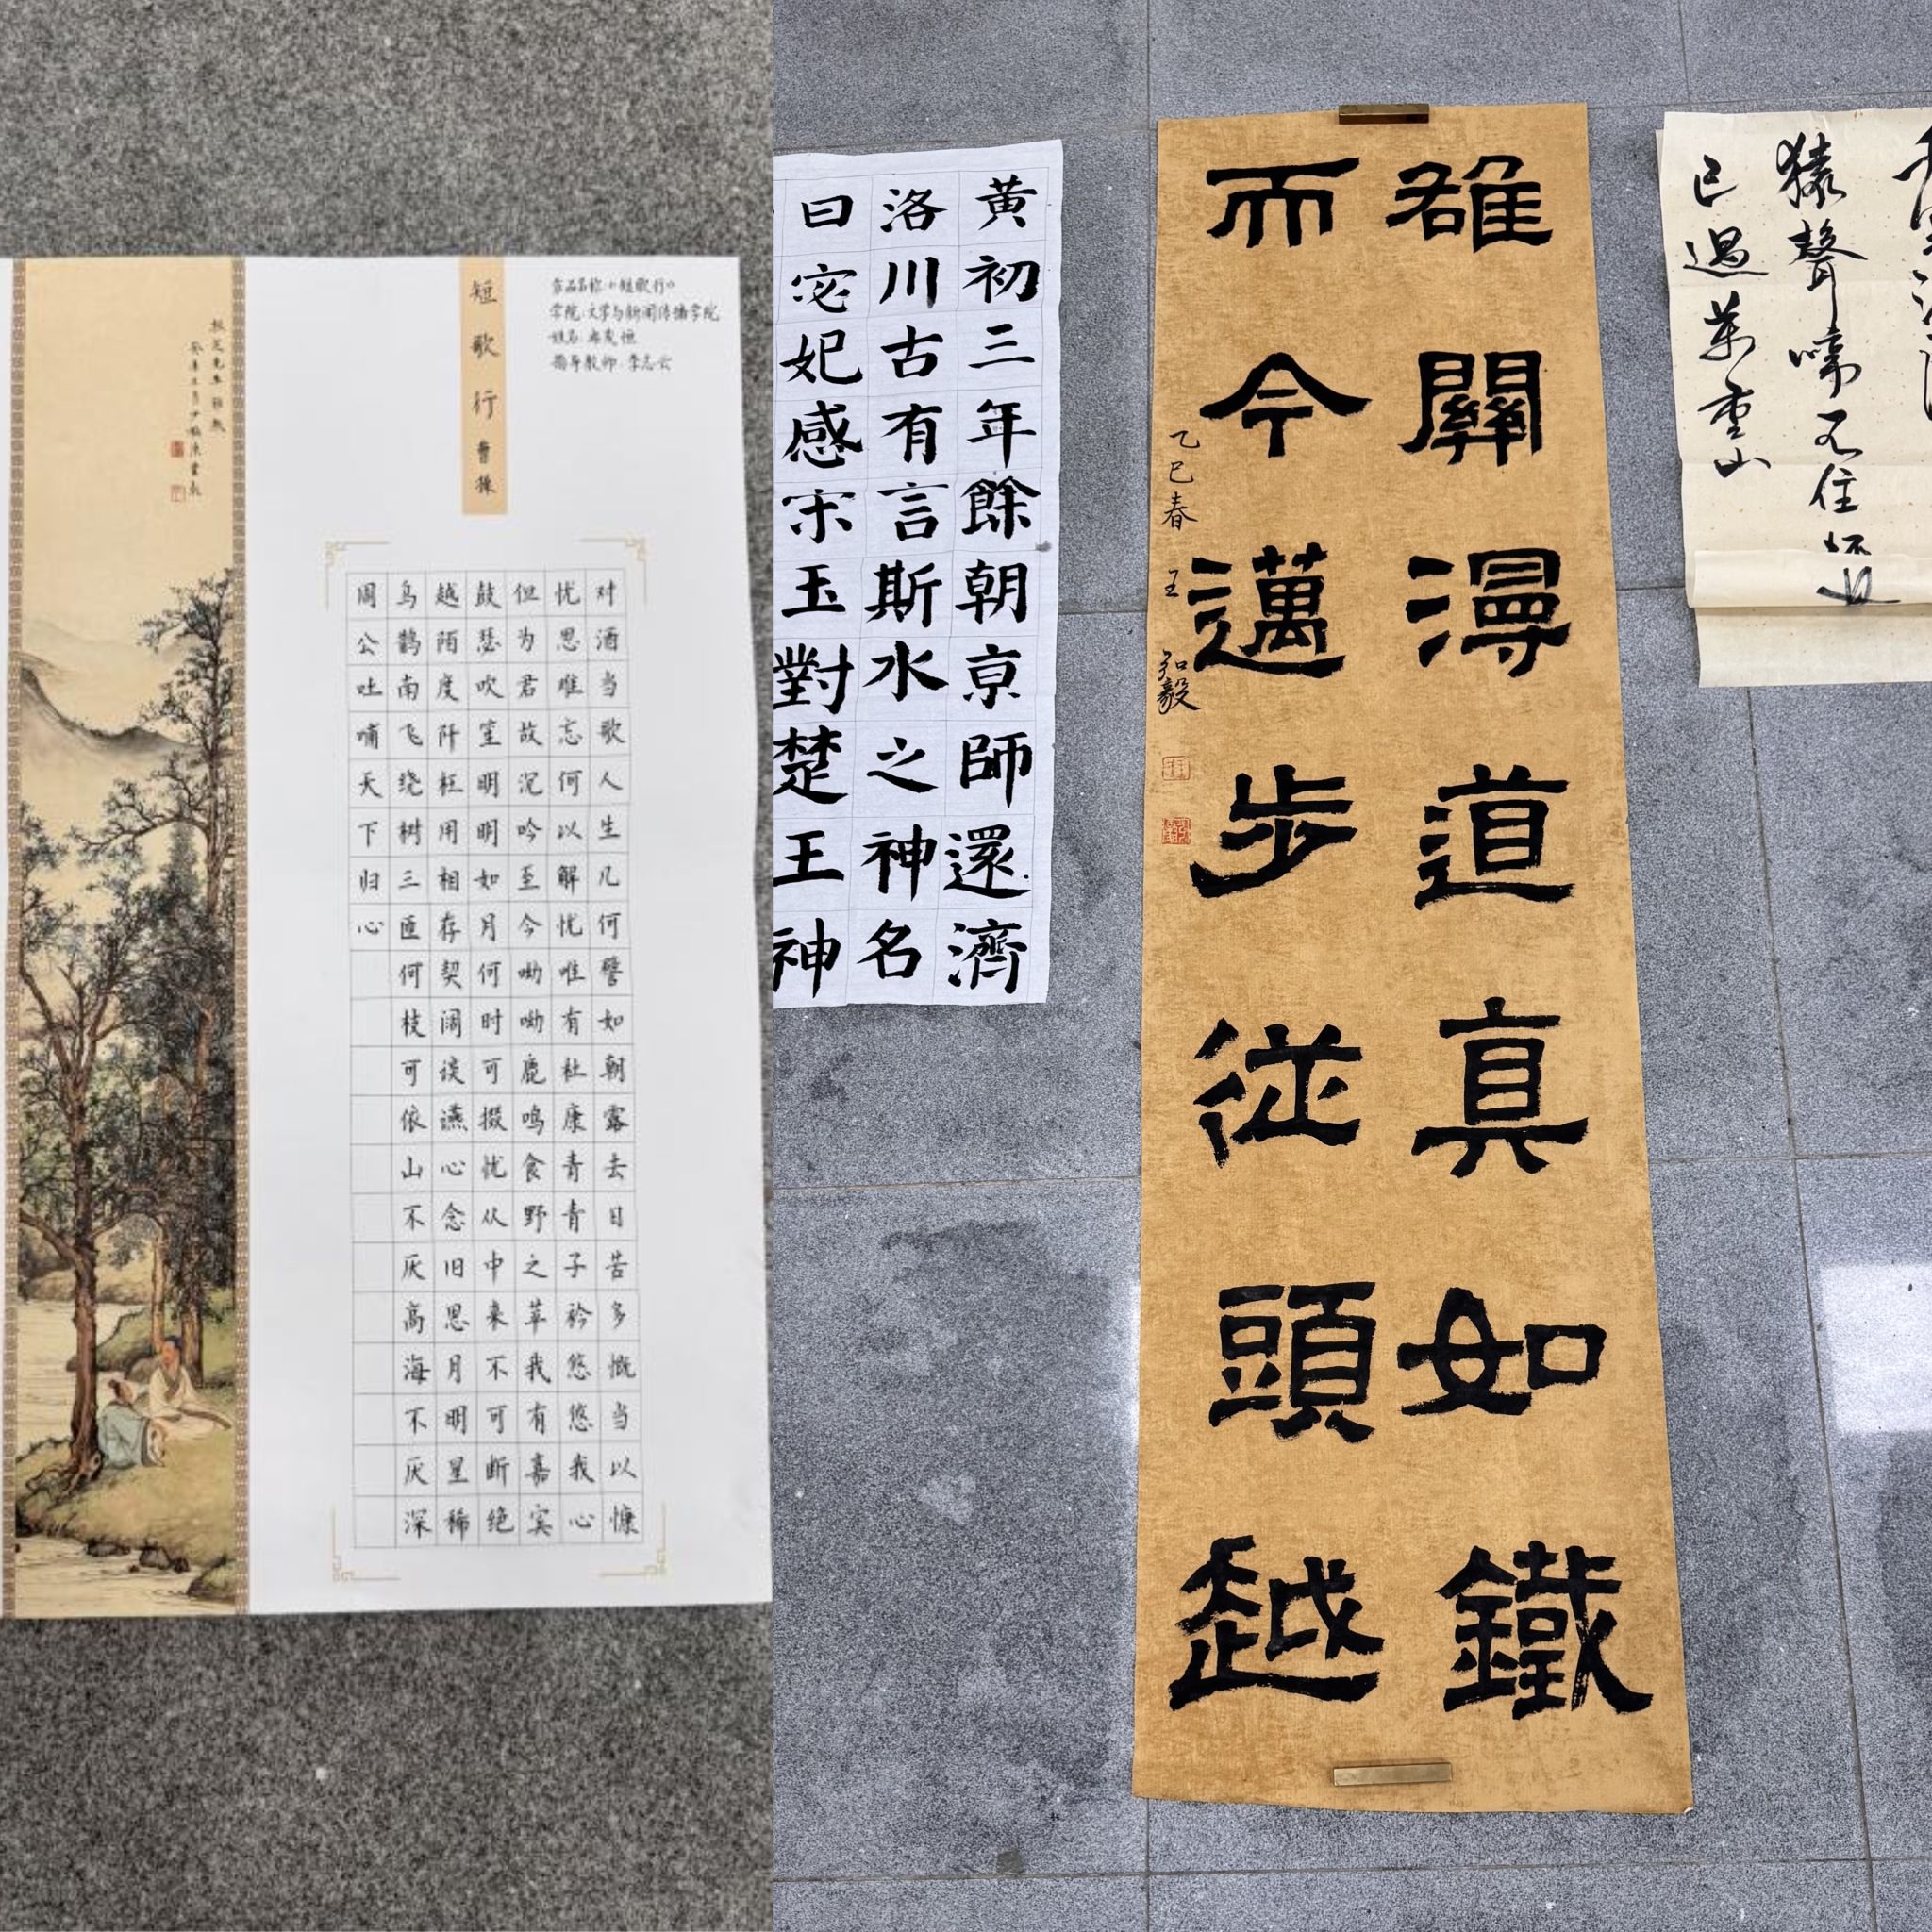 作品名称:《短歌行》
学院:文学与新闻传播学院
指导教师:李志云
短歌行 曹操
对酒当歌人生几何譬如朝露去日苦多慨当以慷
忧思难忘何以解忧唯有杜康青青子衿悠悠我心
但为君故沉吟至今呦呦鹿鸣食野之苹我有嘉宾
鼓瑟吹笙明明如月何时可掇忧从中来不可断绝
越陌度阡枉用相存契阔谈䜩心念旧恩月明星稀
乌鹊南飞绕树三匝何枝可依山不厌高海不厌深
周公吐哺天下归心
黄初三年餘朝亰師還濟
洛川古有言斯水之神名
曰宓妃感宋玉對楚王神
雄關漫道真如鐵
而今邁步從頭越
乙巳春 王弘毅
猿聲啼不住
已過萬重山